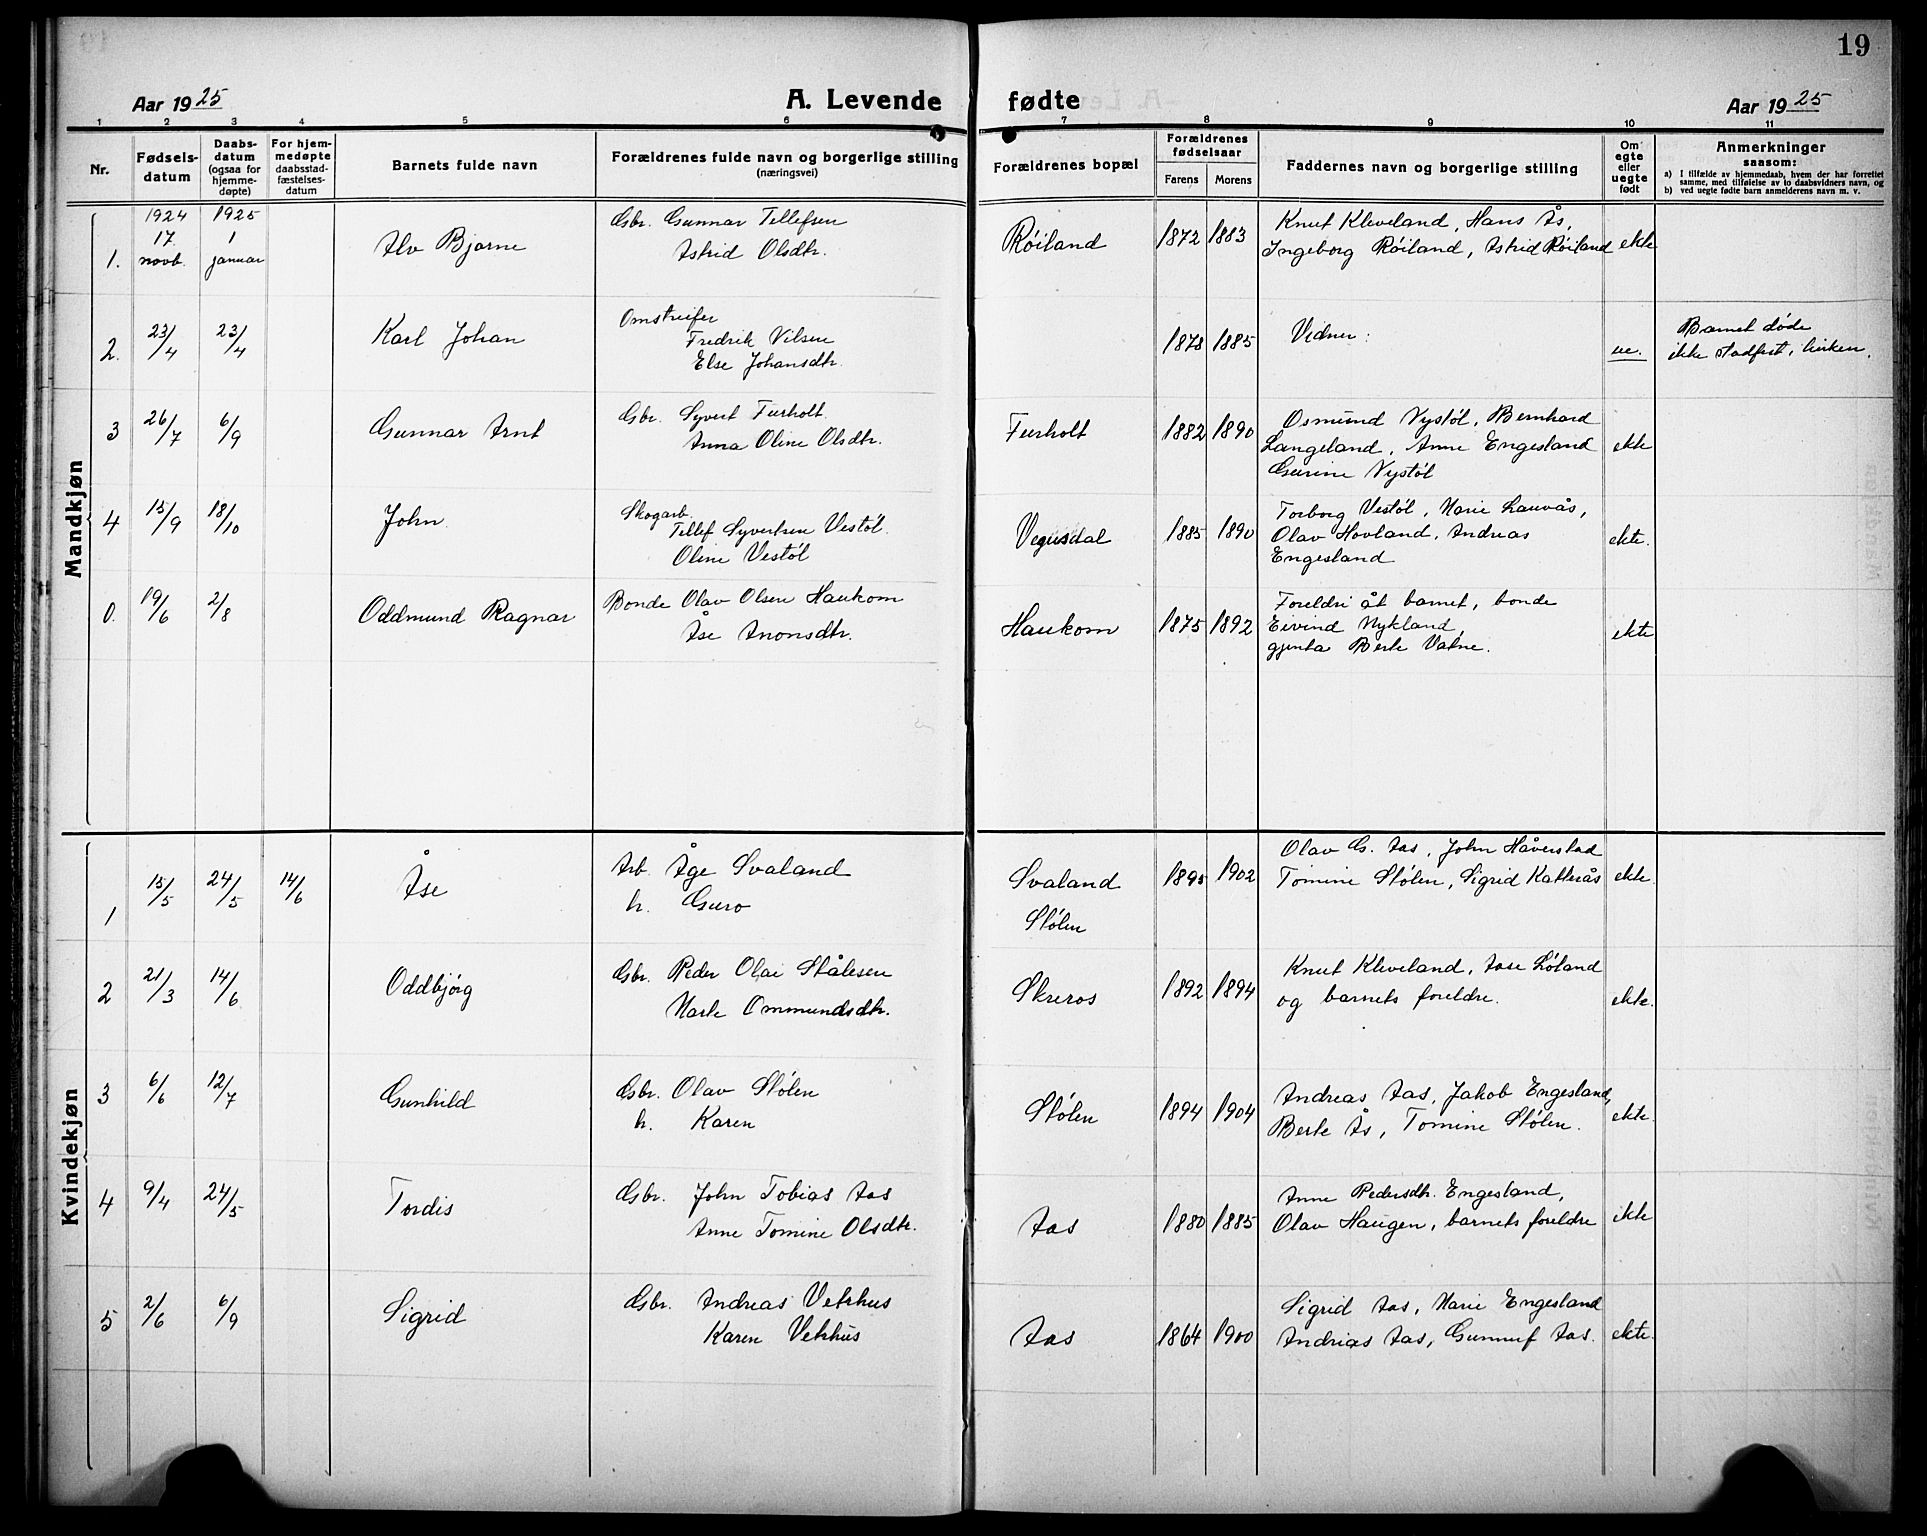 19
Aar 1925
A. Levende fødte
Aar 1925
1 2 3 4 5 6 7 8 9 10 11
Nr.
Fødsels-
datum
Daabs-
datum
(ogsaa for
hjemme-
døpte)
For hjem-
medøpte
daabsstad-
fæstelses-
datum
Barnets fulde navn
Forældrenes fulde navn og borgerlige stilling
(næringsvei)
Forældrenes bopæl
Forældrenes
fødselsaar
Farens Morens
Faddernes navn og borgerlige stilling
Om
egte
eller
uegte
født
Anmerkninger
saasom:
a) I tilfælde av hjemmedaab, hvem der har forrettet
samme, med tilføielse av to daabsvidners navn, og
b) ved uegte fødte barn anmelderens navn m. v.
Mandkjøn
1. 1924 17 novb. 1925 1 januar Alv Bjarne
Gbr. Gunnar Tellefsen
Astrid Olsdtr.
Røiland 1872 1883
Knut Kleveland, Hans Ås,
Ingeborg Røiland, Astrid Røiland ekte
2. 23/4 23/4 Karl Johan
Omstreifer
Fredrik Nilsen
Else Johansdtr.
1878 1885 Vidner: ue.
Barnet døde
ikke stadfest, kirken.
3 26/7 6/9 Gunnar Arnt
Gbr. Syvert Furholt
Anna Oline Olsdtr.
Furholt 1882 1890
Osmund Nystøl, Bernhard
Langeland, Anne Engesland
Gurine Nystøl
ekte
4 15/9 18/10 John
Skogarb.
Tellef Syvertsen Vestøl.
Oline Vestøl
Vegusdal 1885 1890
Torborg Vestøl, Marie Lauvås,
Olav Hovland, Andreas
Engesland
ekte.
0. 19/6 2/8 Oddmund Ragnar
Bonde Olav Olsen Haukom
Åse Anonsdtr.
Haukom 1875 1892
Foreldri åt barnet, bonde
Eivind Nykland,
gjenta Berte Vatne.
ekte
Kvindekjøn
1 15/5 24/5 14/6 Åse
Arb. Åge Svaland
h. Guro
Svaland
Stølen
1895 1902
Olav G. Aas, John Håverstad
Tomine Stølen, Sigrid Katterås ekte.
2 21/3 14/6 Oddbjørg
Gbr. Peder Olai Stålesen
Marte Ommundsdtr.
Skreros 1892 1894
Knut Kleveland, Aase Løland
og barnets foreldre.
ekte.
3 6/6 12/7 Gunhild
Gbr. Olav Stølen
h. Karen
Stølen 1894 1904
Andreas Aas, Jakob Engesland,
Berte Ås, Tomine Stølen.
ekte.
4 9/4 24/5 Tordis
Gbr. John Tobias Aas
Anne Tomine Olsdtr.
Aas 1880 1885
Anne Pedersdtr. Engesland,
Olav Haugen, barnets foreldre ekte
5 2/6 6/9 Sigrid
Gbr. Andreas Vetrhus
Karen Vetrhus
Aas 1864 1900
Sigrid Aas, Marie Engesland
Andrias Aas, Gunnuf Aas. ekte.